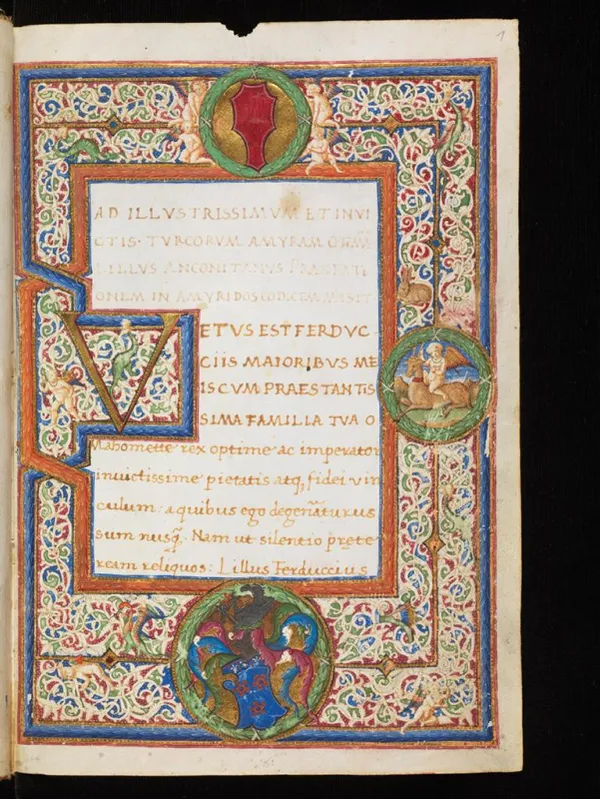 1
AD ILLVSTRISSIMVM ET INVI
CTIS· TVRCORVM AMYRAM
LILLVS ANCONITANVS PRAEFATI
ONEM IN AMYRIDOS CODICEM MISIT
VETVS EST FERDVC
CIIS MAIORIBVS ME
ISCVM PRAESTANTIS
SIMA FAMILIA TVA O
Mahomette rex optime ac imperator
inuictissime pietatis atq, fidei vin
culum: a quibus ego degen̄aturus
sum nusq̄. Nam ut silentio pręte
ream reliquos: Lillus Ferduccius